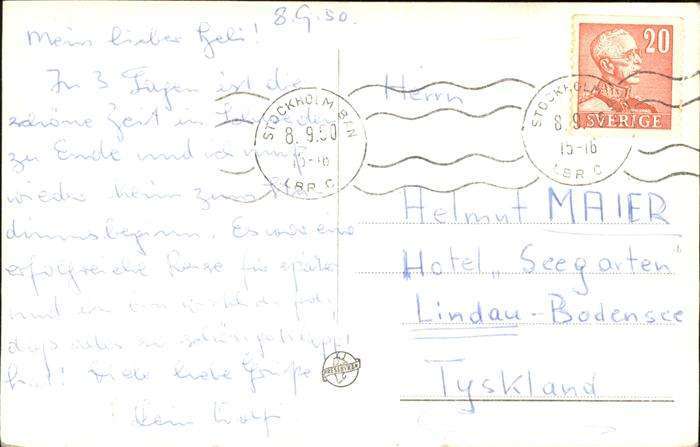 8.9.50.
Mein lieber Heli!
In 3 Tagen ist die
schöne Zeit in Schweden
zu Ende und ich muss
wieder heim zum
Es war eine
erfolgreiche Reise für später
und ich bin
daß alles so schön geklappt
hat! Viele liebe Grüße
Dein Rolf
STOCKHOLM BAN
8.9.50
15-16
LBR C
STOCKHOLM
8.9.
15-16
LBR C
20
SVERIGE
Herrn
Helmut MAIER
Hotel „Seegarten
Lindau-Bodensee
Tyskland